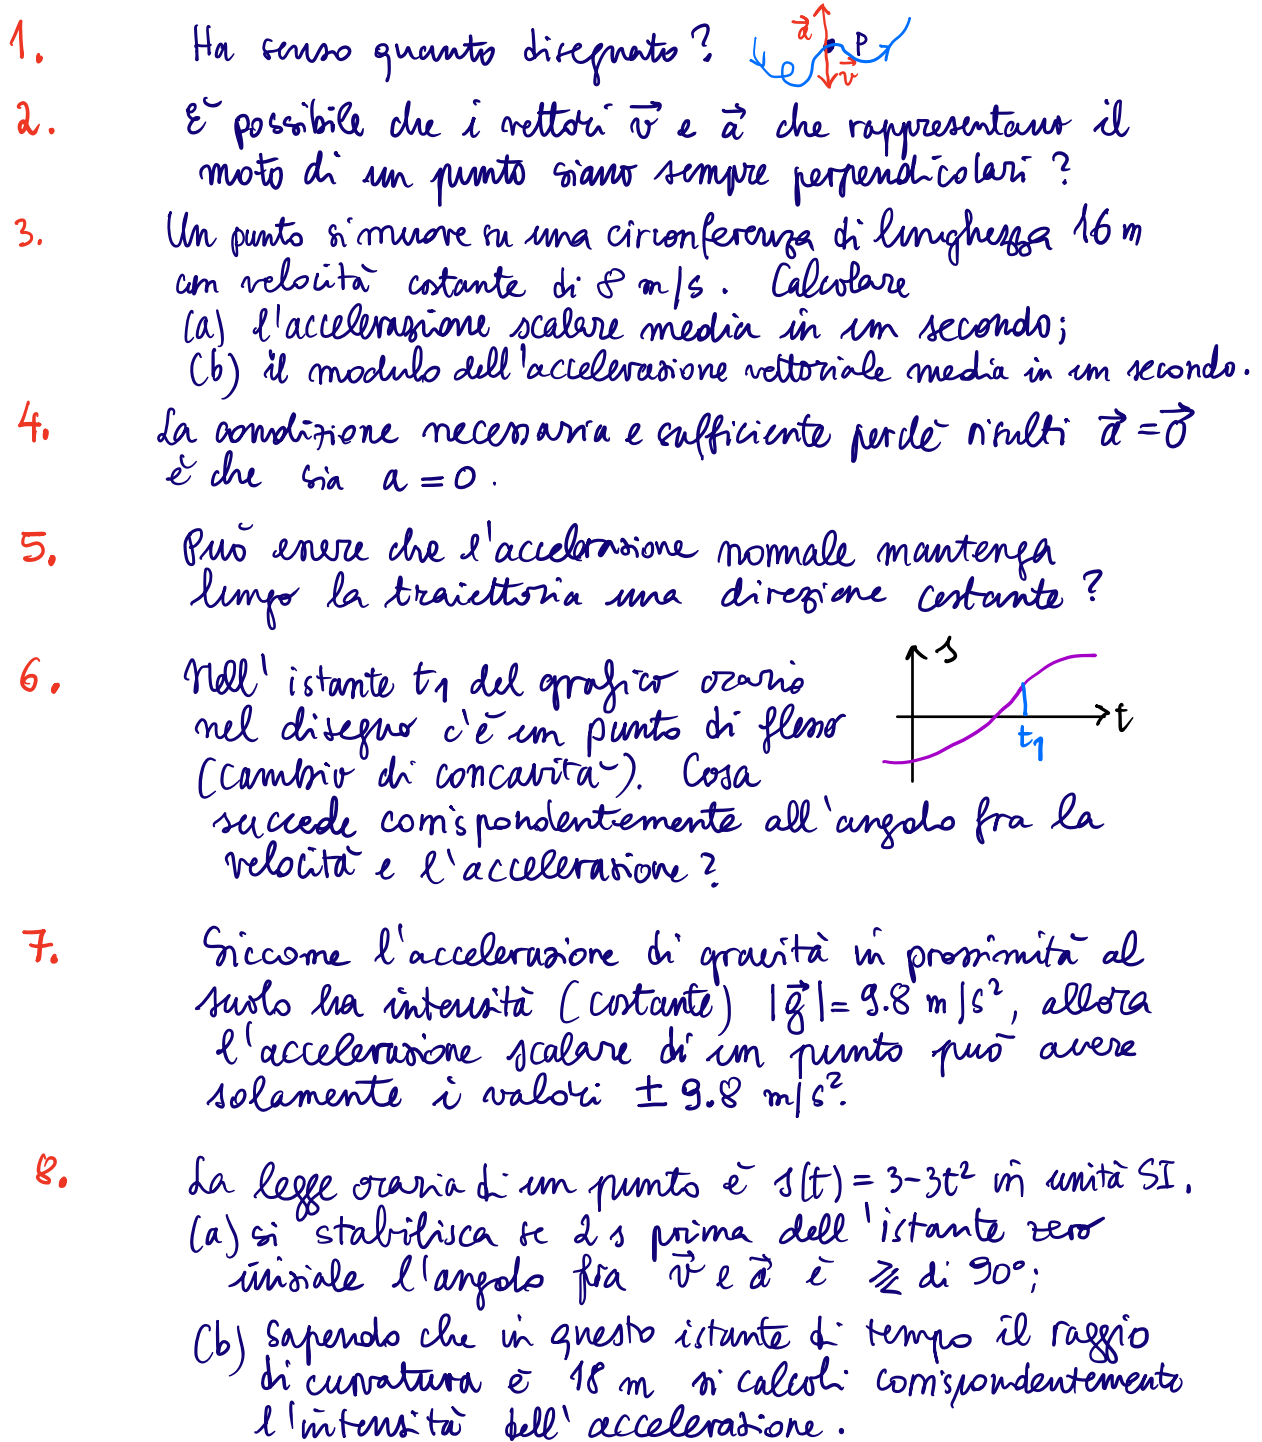 1. Ha senso quanto disegnato? a⃗ P v⃗
2. È possibile che i vettori v⃗ e a⃗ che rappresentano il
moto di un punto siano sempre perpendicolari?
3. Un punto si muove su una circonferenza di lunghezza 16 m
con velocità costante di 8 m/s. Calcolare
(a) l'accelerazione scalare media in un secondo;
(b) il modulo dell'accelerazione vettoriale media in un secondo.
4. La condizione necessaria e sufficiente perchè risulti a⃗ = 0⃗
è che sia a = 0.
5. Può essere che l'accelerazione normale mantenga
lungo la traiettoria una direzione costante?
6. Nell'istante t₁ del grafico orario
nel disegno c'è un punto di flesso
(cambio di concavità). Cosa
succede corrispondentemente all'angolo fra la
velocità e l'accelerazione?
s
t
t₁
7. Siccome l'accelerazione di gravità in prossimità al
suolo ha intensità (costante) |g⃗| = 9.8 m/s², allora
l'accelerazione scalare di un punto può avere
solamente i valori ± 9.8 m/s².
8. La legge oraria di un punto è s(t) = 3-3t² in unità SI.
(a) si stabilisca se 2 s prima dell'istante zero
iniziale l'angolo fra v⃗ e a⃗ è ⪌ di 90°;
(b) sapendo che in questo istante di tempo il raggio
di curvatura è 18 m si calcoli corrispondentemente
l'intensità dell'accelerazione.